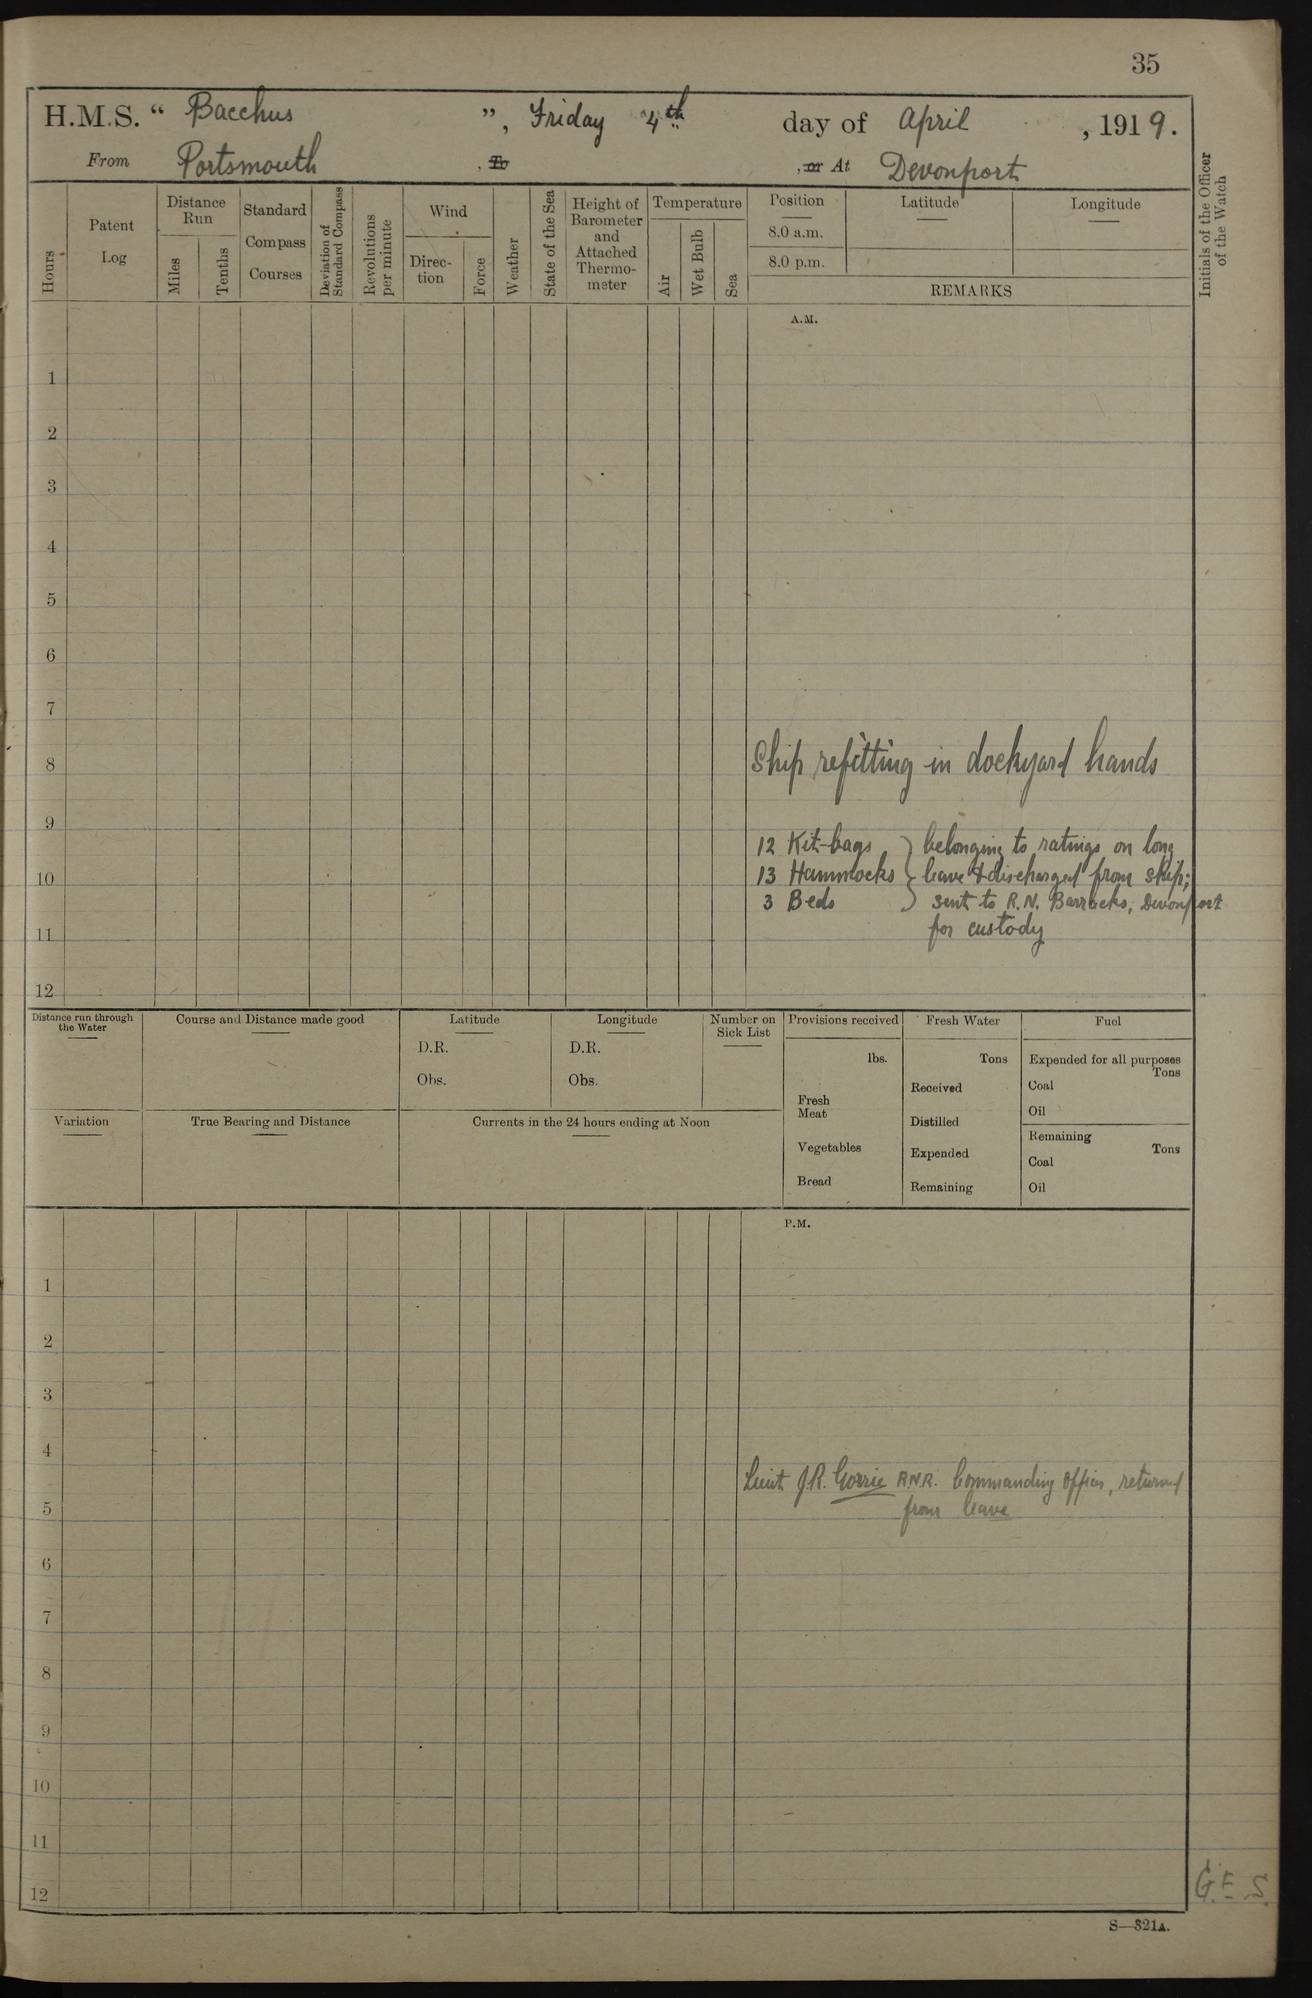 35
H.M.S. “ Bacchus ”, Friday 4th day of April , 1919.
From Portsmouth , To , or At Devonport
Hours
Patent Log
Distance Run
Miles
Tenths
Standard Compass Courses
Deviation of Standard Compass
Revolutions per minute
Wind
Direc-tion
Force
Weather
State of the Sea
Height of Barometer and Attached Thermo-meter
Temperature
Air
Wet Bulb
Sea
Position
8.0 a.m.
8.0 p.m.
Latitude
Longitude
REMARKS
Initials of the Officer of the Watch
A.M.
1
2
3
4
5
6
7
8 Ship refitting in dockyard hands
9
12 Kit-bags } belonging to ratings on long
10 13 Hammocks } leave & discharged from ship;
3 Beds } sent to R.N. Barracks, Devonport
11 for custody
12
Distance run through the Water
Course and Distance made good
Latitude
D.R.
Obs.
Longitude
D.R.
Obs.
Number on Sick List
Variation
True Bearing and Distance
Currents in the 24 hours ending at Noon
Provisions received
lbs.
Fresh Meat
Vegetables
Bread
Fresh Water
Tons
Received
Distilled
Expended
Remaining
Fuel
Expended for all purposes
Tons
Coal
Oil
Remaining
Tons
Coal
Oil
P.M.
1
2
3
4
Lieut J.R. Gorrie R.N.R. Commanding Officer, returned
5 from leave
6
7
8
9
10
11
12
G.E.S.
S—321A.